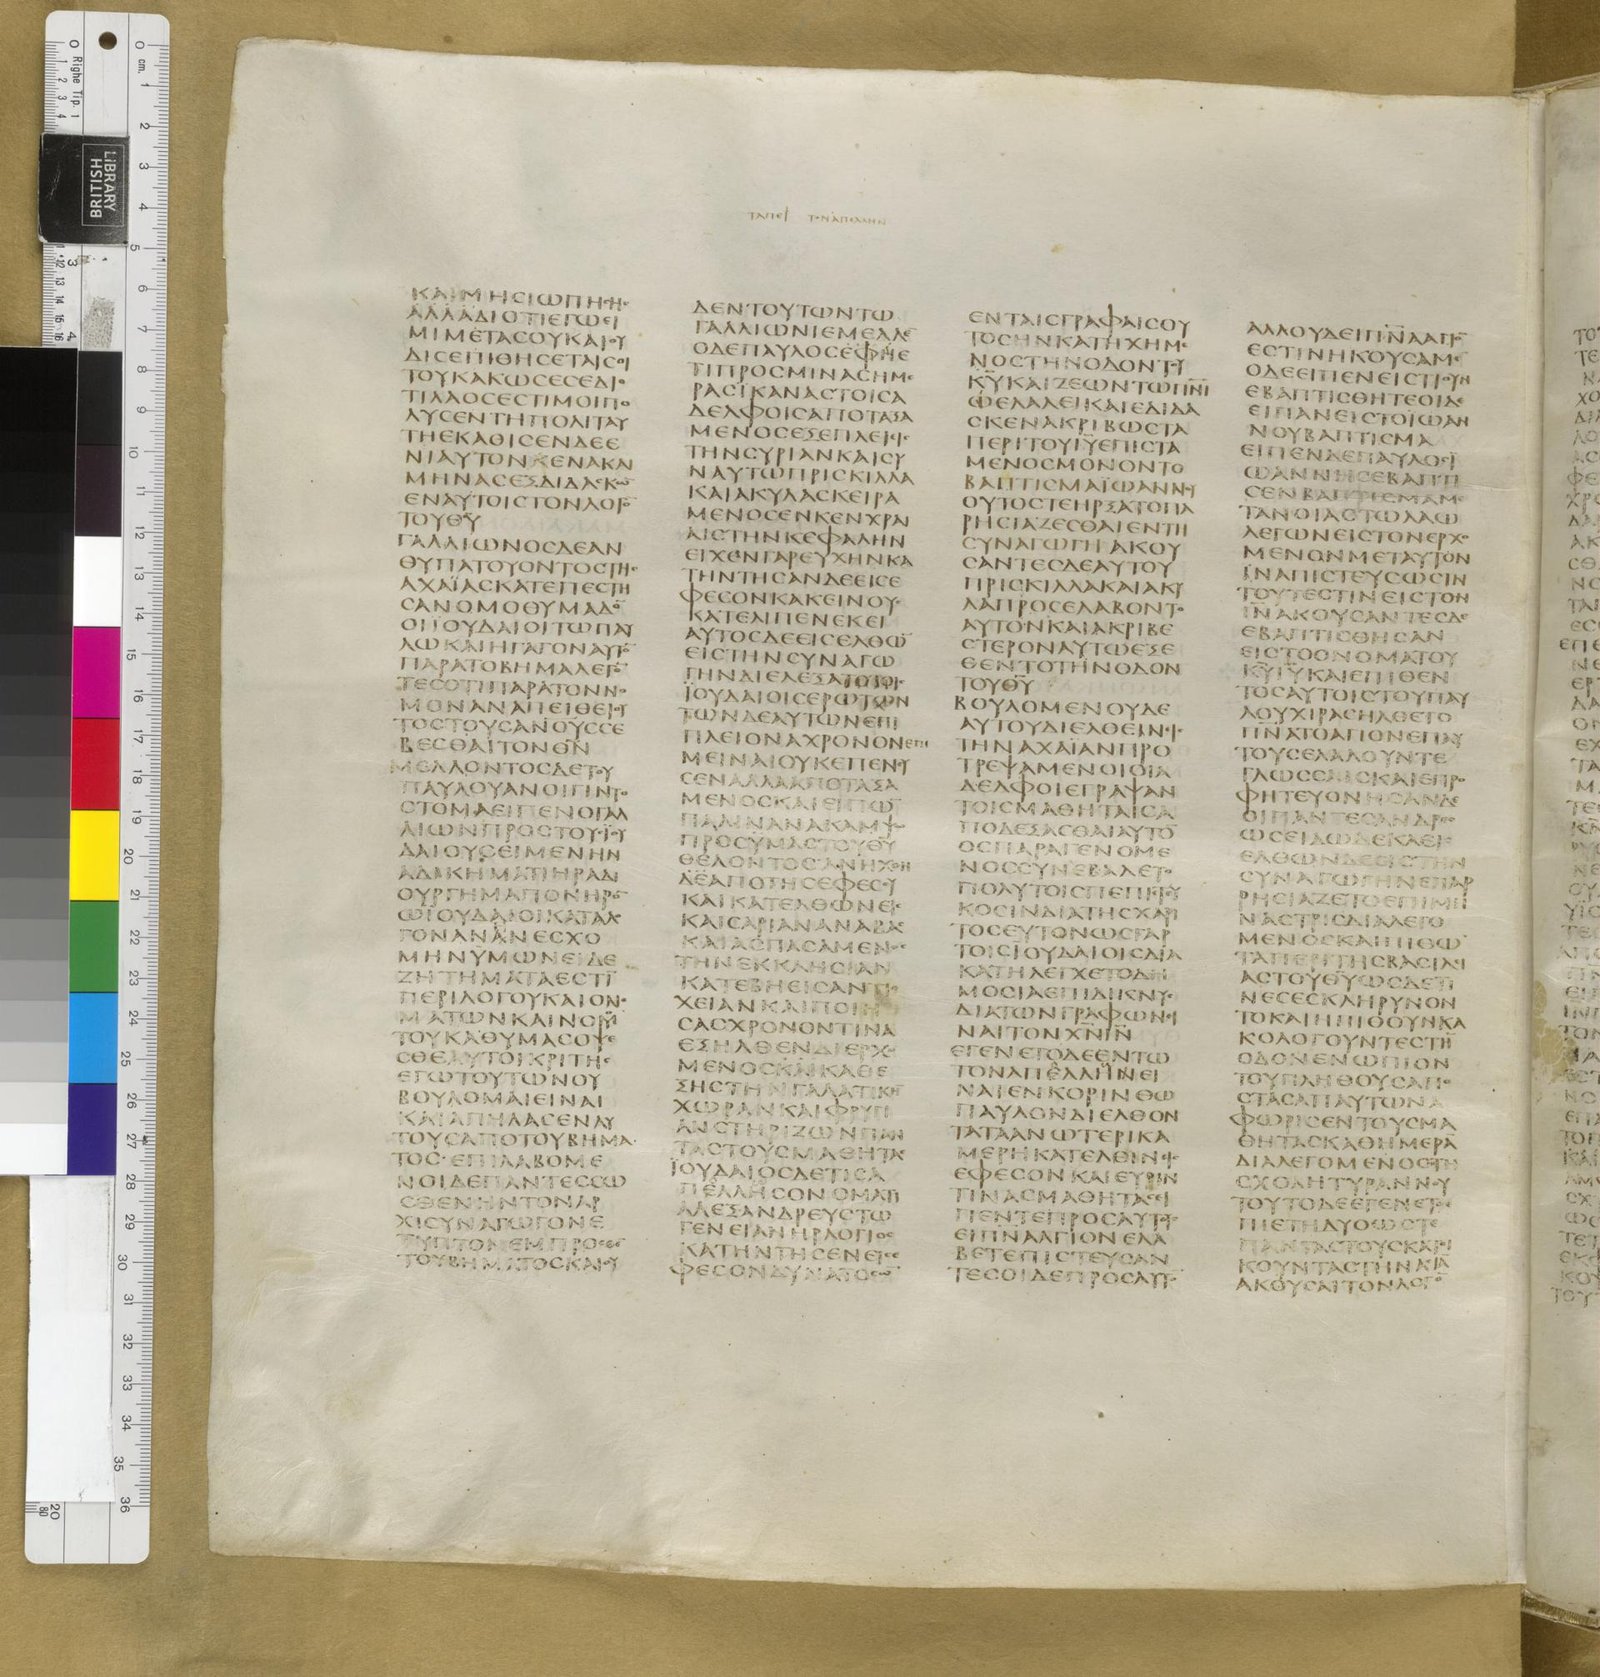 ΚΑΙΜΗCΙΩΠΗCΗC
ΑΛΛΑΔΙΟΤΙΕΓΩΕΙ
ΜΙΜΕΤΑCΟΥΚΑΙΟΥ
ΔΙCΕΠΙΘΗCΕΤΑΙCΟΙ
ΤΟΥΚΑΚΩCΕCΕΔΙΟ
ΤΙΛΑΟCΕCΤΙΜΟΙΠΟ
ΛΥCΕΝΤΗΠΟΛΙΤΑΥ
ΤΗΕΚΑΘΙCΕΝΔΕΕ
ΝΙΑΥΤΟΝΚΕΝΑΚΑΙ
ΜΗΝΑCΕΞΔΙΔΑCΚΩ̅
ΕΝΑΥΤΟΙCΤΟΝΛΟΓΟ̅
ΤΟΥΘ̅Υ̅
ΓΑΛΛΙΩΝΟCΔΕΑΝ
ΘΥΠΑΤΟΥΟΝΤΟCΤΗC
ΑΧΑΪΑCΚΑΤΕΠΕCΤΗ
CΑΝΟΜΟΘΥΜΑΔΟ̅
ΟΙΪΟΥΔΑΙΟΙΤΩΠΑΥ
ΛΩΚΑΙΗΓΑΓΟΝΑΥΤΟ̅
ΠΑΡΑΤΟΒΗΜΑΛΕΓΟ̅
ΤΕCΟΤΙΠΑΡΑΤΟΝΝΟ
ΜΟΝΑΝΑΠΕΙΘΕΙΟΥ
ΤΟCΤΟΥCΑΝΟΥCCΕ
ΒΕCΘΑΙΤΟΝΘ̅Ν̅
ΜΕΛΛΟΝΤΟCΔΕΤΟΥ
ΠΑΥΛΟΥΑΝΟΙΓΙΝΤΟ
CΤΟΜΑΕΙΠΕΝΟΓΑΛ
ΛΙΩΝΠΡΟCΤΟΥCΪΟΥ
ΔΑΙΟΥCΕΙΜΕΝΗΝ
ΑΔΙΚΗΜΑΤΙΗΡΑΔΙ
ΟΥΡΓΗΜΑΠΟΝΗΡΟ̅
ΩΪΟΥΔΑΙΟΙΚΑΤΑΛΟ
ΓΟΝΑΝΑΝΕCΧΟ
ΜΗΝΫΜΩΝΕΙΔΕ
ΖΗΤΗΜΑΤΑΕCΤΙ̅
ΠΕΡΙΛΟΓΟΥΚΑΙΟΝΟ
ΜΑΤΩΝΚΑΙΝΟΜΟΥ
ΤΟΥΚΑΘΥΜΑCΟΨΕ
CΘΕΑΥΤΟΙΚΡΙΤΗC
ΕΓΩΤΟΥΤΩΝΟΥ
ΒΟΥΛΟΜΑΙΕΙΝΑΙ
ΚΑΙΑΠΗΛΑCΕΝΑΥ
ΤΟΥCΑΠΟΤΟΥΒΗΜΑ
ΤΟC·ΕΠΙΛΑΒΟΜΕ
ΝΟΙΔΕΠΑΝΤΕCCΩ
CΘΕΝΗΝΤΟΝΑΡ
ΧΙCΥΝΑΓΩΓΟΝΕ
ΤΥΠΤΟΝΕΜΠΡΟCΘΕ̅
ΤΟΥΒΗΜΑΤΟCΚΑΙΟΥ
ΔΕΝΤΟΥΤΩΝΤΩ
ΓΑΛΛΙΩΝΙΕΜΕΛΛΕ̅
ΟΔΕΠΑΥΛΟCΕΦΗΕ
ΤΙΠΡΟCΜΙΝΑCΗΜΕ
ΡΑCΪΚΑΝΑCΤΟΙCΑ
ΔΕΛΦΟΙCΑΠΟΤΑΞΑ
ΜΕΝΟCΕΞΕΠΛΕΙΕΙC
ΤΗΝCΥΡΙΑΝΚΑΙCΥ
ΝΑΥΤΩΠΡΙCΚΙΛΛΑ
ΚΑΙΑΚΥΛΑCΚΕΙΡΑ
ΜΕΝΟCΕΝΚΕΝΧΡΑΙ
ΑΙCΤΗΝΚΕΦΑΛΗΝ
ΕΙΧΕΝΓΑΡΕΥΧΗΝΚΑ
ΤΗΝΤΗCΑΝΔΕΕΙCΕ
ΦΕCΟΝΚΑΚΕΙΝΟΥC
ΚΑΤΕΛΙΠΕΝΕΚΕΙ
ΑΥΤΟCΔΕΕΙCΕΛΘΩ̅
ΕΙCΤΗΝCΥΝΑΓΩ
ΓΗΝΔΙΕΛΕΞΑΤΟΤΟΙC
ΪΟΥΔΑΙΟΙCΕΡΩΤΩΝ
ΤΩΝΔΕΑΥΤΩΝΕΠΙ
ΠΛΕΙΟΝΑΧΡΟΝΟΝΕΠΙ
ΜΕΙΝΑΙΟΥΚΕΠΕΝΕΥ
CΕΝΑΛΛΑΑΠΟΤΑΞΑ
ΜΕΝΟCΚΑΙΕΙΠΩ̅
ΠΑΛΙΝΑΝΑΚΑΜΨΩ
ΠΡΟCΥΜΑCΤΟΥΘ̅Υ̅
ΘΕΛΟΝΤΟCΑΝΗΧΘΗ
ΔΕΑΠΟΤΗCΕΦΕCΟΥ
ΚΑΙΚΑΤΕΛΘΩΝΕΙC
ΚΑΙCΑΡΙΑΝΑΝΑΒΑC
ΚΑΙΑCΠΑCΑΜΕΝΟC
ΤΗΝΕΚΚΛΗCΙΑΝ
ΚΑΤΕΒΗΕΙCΑΝΤΙΟ
ΧΕΙΑΝΚΑΙΠΟΙΗ
CΑCΧΡΟΝΟΝΤΙΝΑ
ΕΞΗΛΘΕΝΔΙΕΡΧΟ
ΜΕΝΟCΚΑΙΚΑΘΕ
ΞΗCΤΗΝΓΑΛΑΤΙΚΗ̅
ΧΩΡΑΝΚΑΙΦΡΥΓΙ
ΑΝCΤΗΡΙΖΩΝΠΑΝ
ΤΑCΤΟΥCΜΑΘΗΤΑC
ΪΟΥΔΑΙΟCΔΕΤΙCΑ
ΠΕΛΛΗCΟΝΟΜΑΤΙ
ΑΛΕΞΑΝΔΡΕΥCΤΩ
ΓΕΝΕΙΑΝΗΡΛΟΓΙΟC
ΚΑΤΗΝΤΗCΕΝΕΙCΕ
ΦΕCΟΝΔΥΝΑΤΟCΩ̅
ΕΝΤΑΙCΓΡΑΦΑΙCΟΥ
ΤΟCΗΝΚΑΤΗΧΗΜΕ
ΝΟCΤΗΝΟΔΟΝΤΟΥ
Κ̅Υ̅ΚΑΙΖΕΩΝΤΩΠ̅Ν̅Ι̅
ΩΕΛΑΛΕΙΚΑΙΕΔΙΔΑ
CΚΕΝΑΚΡΙΒΩCΤΑ
ΠΕΡΙΤΟΥΙ̅Υ̅ΕΠΙCΤΑ
ΜΕΝΟCΜΟΝΟΝΤΟ
ΒΑΠΤΙCΜΑΪΩΑΝΝΟΥ
ΟΥΤΟCΤΕΗΡΞΑΤΟΠΑ
ΡΗCΙΑΖΕCΘΑΙΕΝΤΗ
CΥΝΑΓΩΓΗΑΚΟΥ
CΑΝΤΕCΔΕΑΥΤΟΥ
ΠΡΙCΚΙΛΛΑΚΑΙΑΚΥ
ΛΑΠΡΟCΕΛΑΒΟΝΤΟ
ΑΥΤΟΝΚΑΙΑΚΡΙΒΕ
CΤΕΡΟΝΑΥΤΩΕΞΕ
ΘΕΝΤΟΤΗΝΟΔΟΝ
ΤΟΥΘ̅Υ̅
ΒΟΥΛΟΜΕΝΟΥΔΕ
ΑΥΤΟΥΔΙΕΛΘΕΙΝΕΙC
ΤΗΝΑΧΑΪΑΝΠΡΟ
ΤΡΕΨΑΜΕΝΟΙΟΙΑ
ΔΕΛΦΟΙΕΓΡΑΨΑΝ
ΤΟΙCΜΑΘΗΤΑΙCΑ
ΠΟΔΕΞΑCΘΑΙΑΥΤΟ̅
ΟCΠΑΡΑΓΕΝΟΜΕ
ΝΟCCΥΝΕΒΑΛΕΤΟ
ΠΟΛΥΤΟΙCΠΕΠΙCΤΕΥ
ΚΟCΙΝΔΙΑΤΗCΧΑΡΙ
ΤΟCΕΥΤΟΝΩCΓΑΡ
ΤΟΙCΪΟΥΔΑΙΟΙCΔΙΑ
ΚΑΤΗΛΕΓΧΕΤΟΔΗ
ΜΟCΙΑΕΠΙΔΙΚΝΥC
ΔΙΑΤΩΝΓΡΑΦΩΝΕΙ
ΝΑΙΤΟΝΧ̅Ν̅Ι̅Ν̅
ΕΓΕΝΕΤΟΔΕΕΝΤΩ
ΤΟΝΑΠΕΛΛΗΝΕΙ
ΝΑΙΕΝΚΟΡΙΝΘΩ
ΠΑΥΛΟΝΔΙΕΛΘΟΝ
ΤΑΤΑΑΝΩΤΕΡΙΚΑ
ΜΕΡΗΚΑΤΕΛΘΙΝΕΙC
ΕΦΕCΟΝΚΑΙΕΥΡΙΝ
ΤΙΝΑCΜΑΘΗΤΑCΕΙ
ΠΕΝΤΕΠΡΟCΑΥΤΟΥC
ΕΙΠΝΑΑΓΙΟΝΕΛΑ
ΒΕΤΕΠΙCΤΕΥCΑΝ
ΤΕCΟΙΔΕΠΡΟCΑΥΤΟ̅
ΑΛΛΟΥΔΕΙΠ̅Ν̅Α̅ΑΓΙΟ̅
ΕCΤΙΝΗΚΟΥCΑΜΕ̅
ΟΔΕΕΙΠΕΝΕΙCΤΙΟΥΝ
ΕΒΑΠΤΙCΘΗΤΕΟΙΔΕ
ΕΙΠΑΝΕΙCΤΟΪΩΑΝ
ΝΟΥΒΑΠΤΙCΜΑ
ΕΙΠΕΝΔΕΠΑΥΛΟCΪ
ΩΑΝΝΗCΕΒΑΠΤΙ
CΕΝΒΑΠΤΙCΜΑΜΕ
ΤΑΝΟΙΑCΤΩΛΑΩ
ΛΕΓΩΝΕΙCΤΟΝΕΡΧΟ
ΜΕΝΟΝΜΕΤΑΥΤΟΝ
ΪΝΑΠΙCΤΕΥCΩCΙΝ
ΤΟΥΤΕCΤΙΝΕΙCΤΟΝ
Ι̅Ν̅ΑΚΟΥCΑΝΤΕCΔΕ
ΕΒΑΠΤΙCΘΗCΑΝ
ΕΙCΤΟΟΝΟΜΑΤΟΥ
Κ̅Υ̅Ι̅Υ̅ΚΑΙΕΠΙΘΕΝ
ΤΟCΑΥΤΟΙCΤΟΥΠΑΥ
ΛΟΥΧΙΡΑCΗΛΘΕΤΟ
Π̅Ν̅Α̅ΤΟΑΓΙΟΝΕΠΑΥ
ΤΟΥCΕΛΑΛΟΥΝΤΕ
ΓΛΩCCΑΙCΚΑΙΕΠΡΟ
ΦΗΤΕΥΟΝΗCΑΝΔΕ
ΟΙΠΑΝΤΕCΑΝΔΡΕC
ΩCΕΙΔΩΔΕΚΑΕΙC
ΕΛΘΩΝΔΕΕΙCΤΗΝ
CΥΝΑΓΩΓΗΝΕΠΑΡ
ΡΗCΙΑΖΕΤΟΕΠΙΜΗ
ΝΑCΤΡΙCΔΙΑΛΕΓΟ
ΜΕΝΟCΚΑΙΠΙΘΩ̅
ΤΑΠΕΡΙΤΗCΒΑCΙΛΕΙ
ΑCΤΟΥΘ̅Υ̅ΩCΔΕΤΙ
ΝΕCΕCΚΛΗΡΥΝΟΝ
ΤΟΚΑΙΗΠΙΘΟΥΝΚΑ
ΚΟΛΟΓΟΥΝΤΕCΤΗ̅
ΟΔΟΝΕΝΩΠΙΟΝ
ΤΟΥΠΛΗΘΟΥCΑΠΟ
CΤΑCΑΠΑΥΤΩΝΑ
ΦΩΡΙCΕΝΤΟΥCΜΑ
ΘΗΤΑCΚΑΘΗΜΕΡΑ̅
ΔΙΑΛΕΓΟΜΕΝΟCΤΗ
CΧΟΛΗΤΥΡΑΝΝΟΥ
ΤΟΥΤΟΔΕΕΓΕΝΕΤΟΕ
ΠΙΕΤΗΔΥΟΩCΤΕ
ΠΑΝΤΑCΤΟΥCΚΑΤΟΙ
ΚΟΥΝΤΑCΤΗΝΑCΙΑ̅
ΑΚΟΥCΑΙΤΟΝΛΟΓΟ̅
Righe Tip.
cm.
BRITISH
LIBRARY